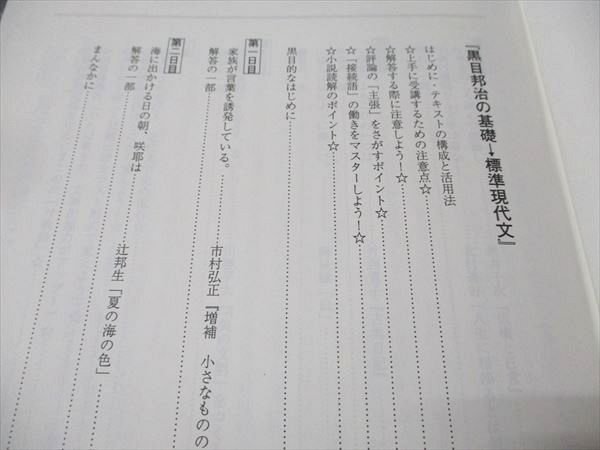 『黒目邦治の基礎→標準現代文』
はじめに・テキストの構成と活用法
☆上手に受講するための注意点☆
☆解答する際に注意しよう！☆
☆評論の「主張」をさがすポイント☆
☆「接続語」の働きをマスターしよう！☆
☆小説読解のポイント☆
黒目的なはじめに
第一日目
家族が言葉を誘発している。 市村弘正『増補 小さなものの
解答の一部
第二日目
海に出かける日の朝、咲耶は 辻邦生「夏の海の色」
解答の一部
まんなかに